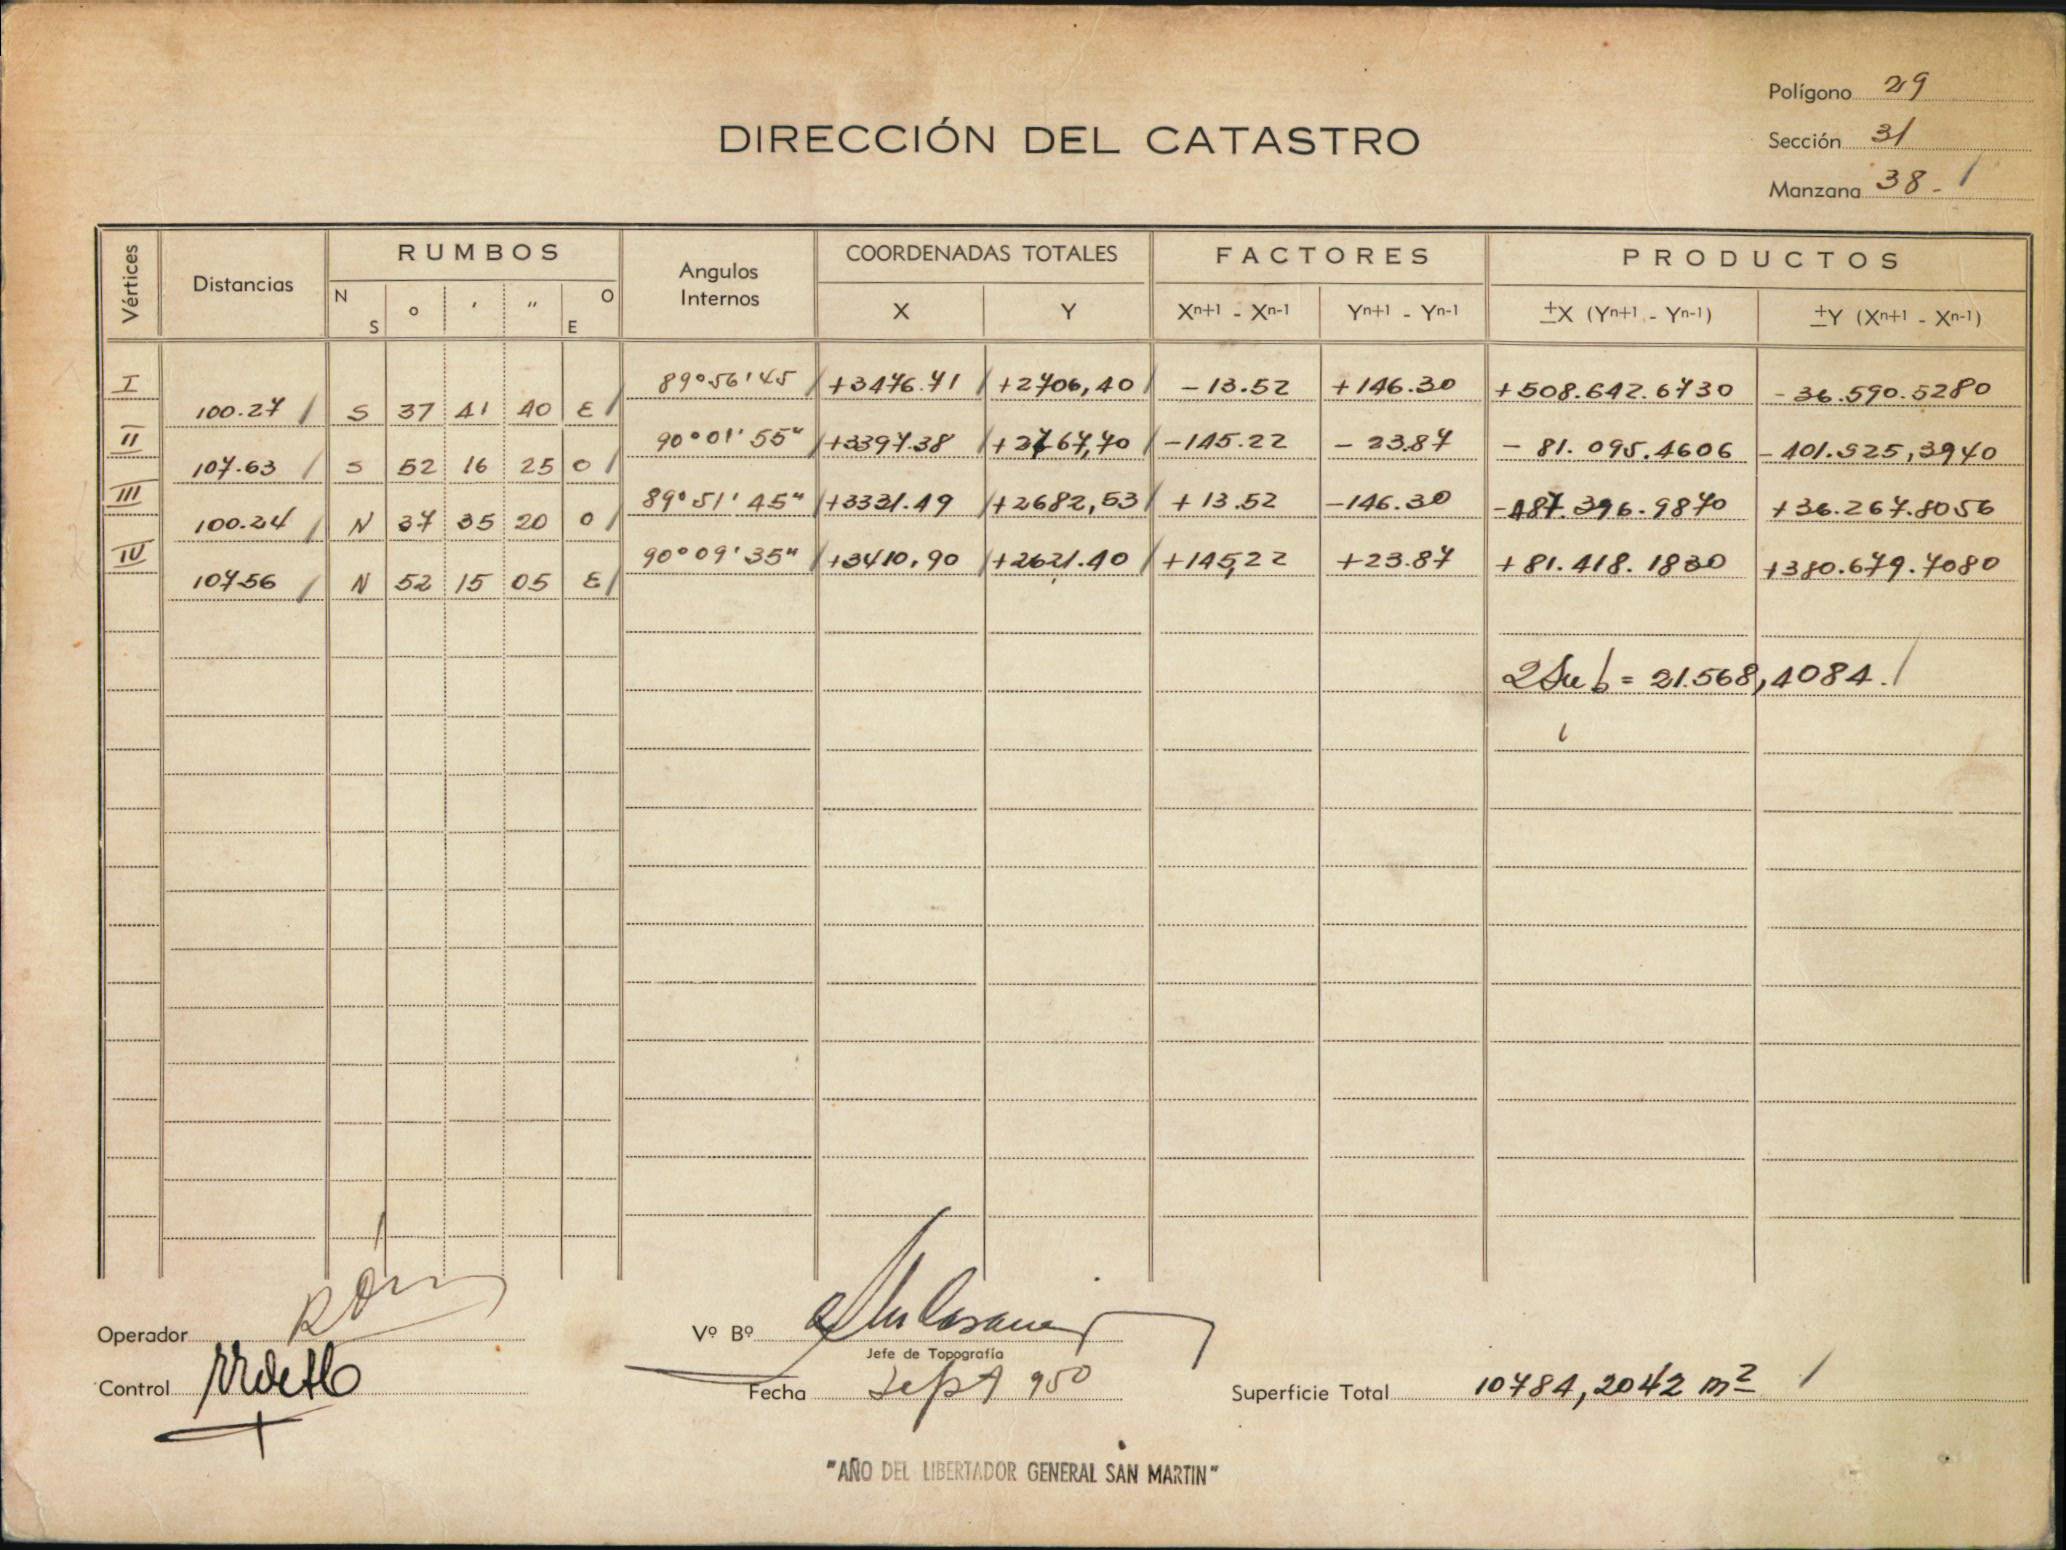 Polígono 29
DIRECCIÓN DEL CATASTRO
Sección 31
Manzana 38.
Vértices Distancias RUMBOS Angulos Internos COORDENADAS TOTALES FACTORES PRODUCTOS
N S ° ' " O E X Y Xn+1 - Xn-1 Yn+1 - Yn-1 ±X (Yn+1 - Yn-1) ±Y (Xn+1 - Xn-1)
I 89°56'45 +3476.71 +2706,40 -13.52 +146.30 +508.642.6730 -36.590.5280
100.27 S 37 41 40 E
II 90°01'55" +3397.38 +2767,70 -145.22 -23.87 -81.095.4606 -401.925,3940
107.63 S 52 16 25 O
III 89°51'45" +3331.49 +2682,53 +13.52 -146.30 -487.396.9870 +36.267.8056
100.24 N 37 35 20 O
IV 90°09'35" +3410,90 +2621.40 +145,22 +23.87 +81.418.1830 +380.679.7080
107.56 N 52 15 05 E
2Sub = 21.568,4084.
Operador
Vº Bº
Jefe de Topografía
Control
Fecha Sept 950
Superficie Total 10784,2042 m²
"AÑO DEL LIBERTADOR GENERAL SAN MARTIN"